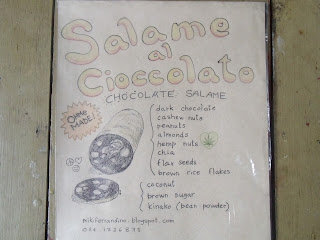 Salame
al
Cioccolato
CHOCOLATE SALAME
HOME
MADE!
dark chocolate
cashew nuts
peanuts
almonds
hemp nuts
chia
flax seeds
brown rice flakes
coconut
brown sugar
kinako (bean powder)